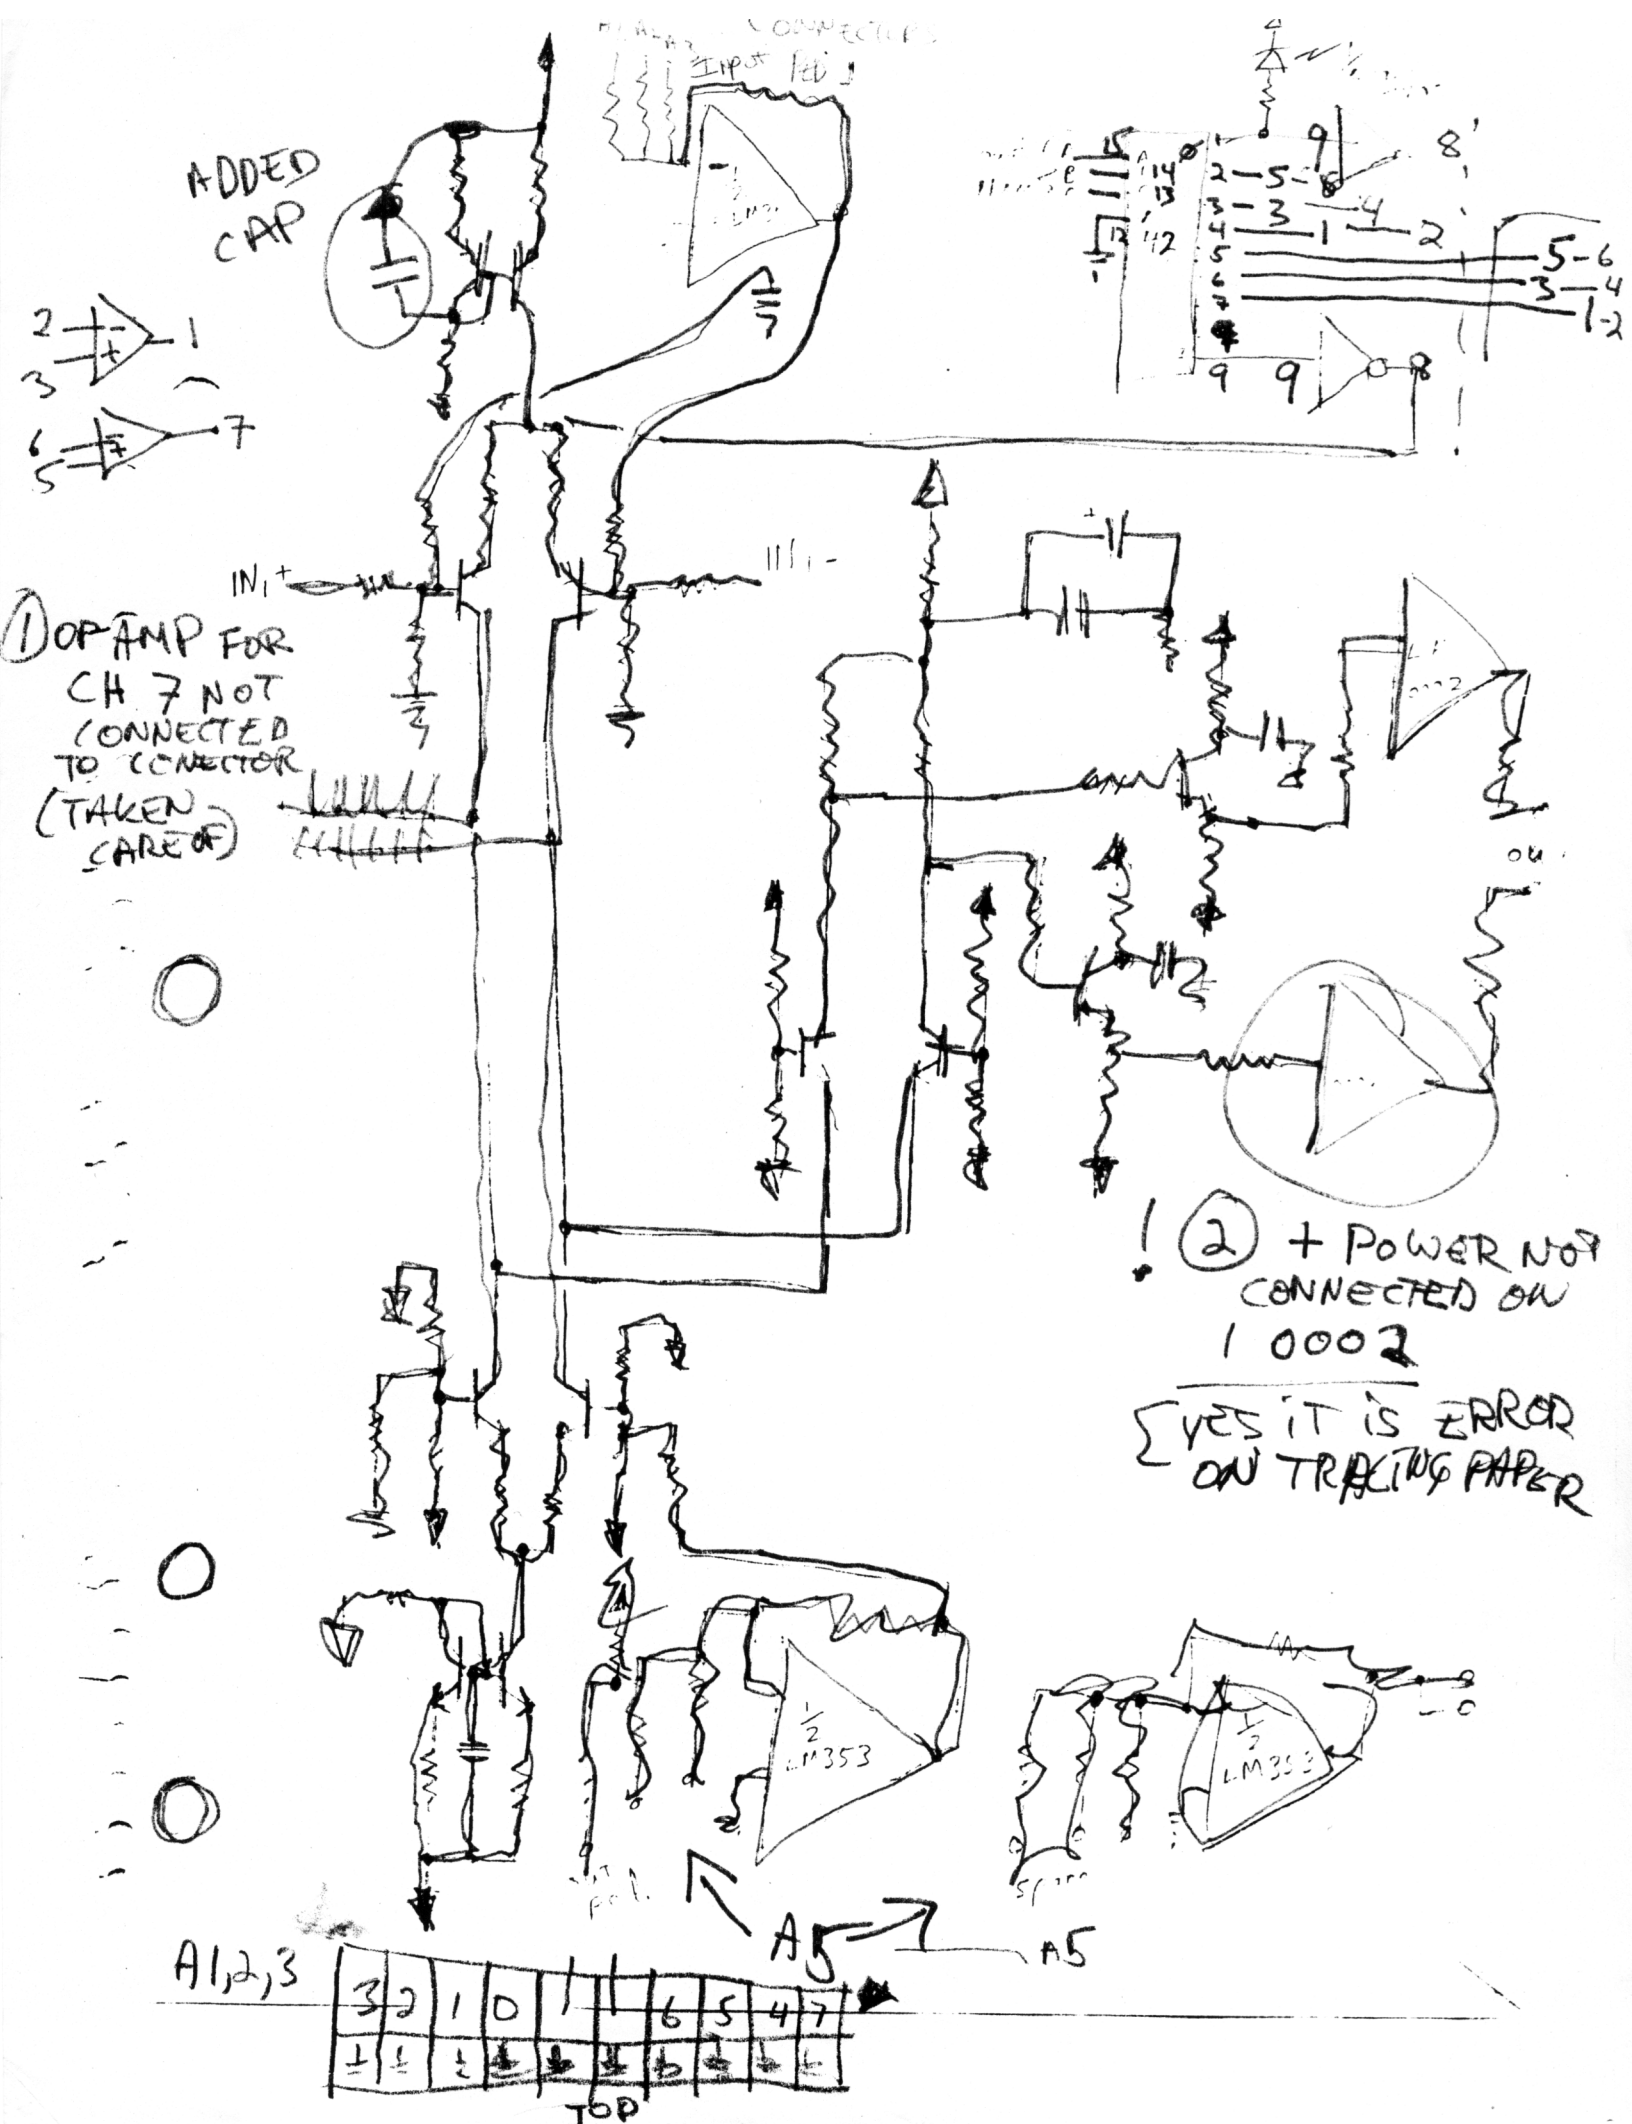 CONNECTORS
Input
ADDED
CAP
1/2
LM3
7
15 1 9 8
14 2-5-6
13 3-3-4
12 4-1-2
5 5-6
6 3-4
7 1-2
9 9 8
2 - 1
3 +
6 - 7
5 +
IN1+
IN1-
① OP AMP FOR
CH 7 NOT
CONNECTED
TO CONECTOR
(TAKEN
CARE OF)
0002
! ② + POWER NOT
CONNECTED ON
1 0002
{YES IT IS ERROR
ON TRACING PAPER
1/2
LM353
1/2
LM353
A5
A5
A1,2,3
3 2 1 0 6 5 4 7
TOP